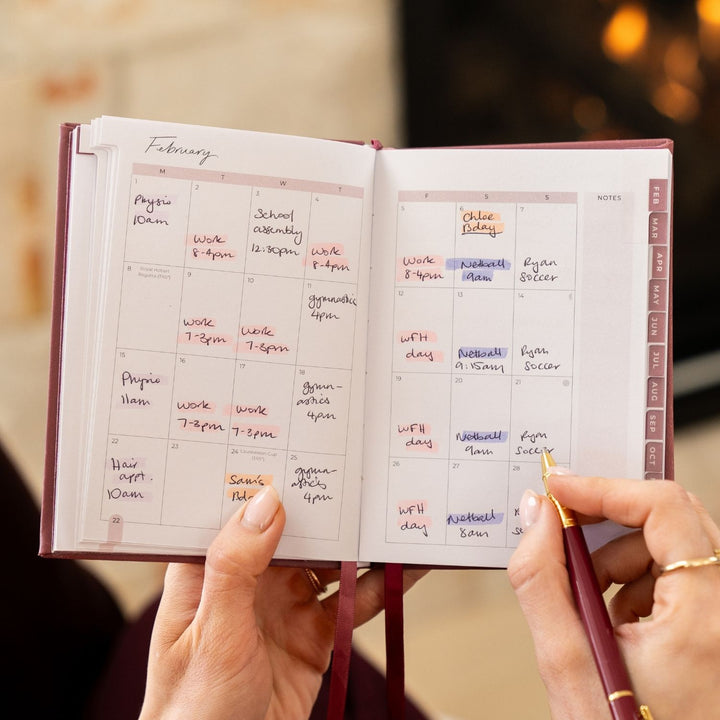 February
M
T
W
T
1
Physio
10am
2
Work
8-4pm
3
School
assembly
12:30pm
4
Work
8-4pm
8
Royal Hobart
Regatta
9
Work
7-3pm
10
Work
7-3pm
11
gymnastics
4pm
15
Physio
11am
16
Work
7-3pm
17
Work
7-3pm
18
gymn-
astics
4pm
22
Hair
appt.
10am
23
24
Launceston Cup
Sam's
25
gymn-
astics
4pm
22
F
S
S
NOTES
5
Work
8-4pm
6
Chloe
Bday
Netball
9am
7
Ryan
Soccer
12
WFH
day
13
Netball
9:15am
14
Ryan
Soccer
19
WFH
day
20
Netball
9am
21
Ryan
Soccer
26
WFH
day
27
Netball
8am
28
FEB
MAR
APR
MAY
JUN
JUL
AUG
SEP
OCT